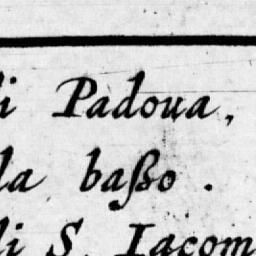 i Padoua,
la baßo.
li S. Iacom